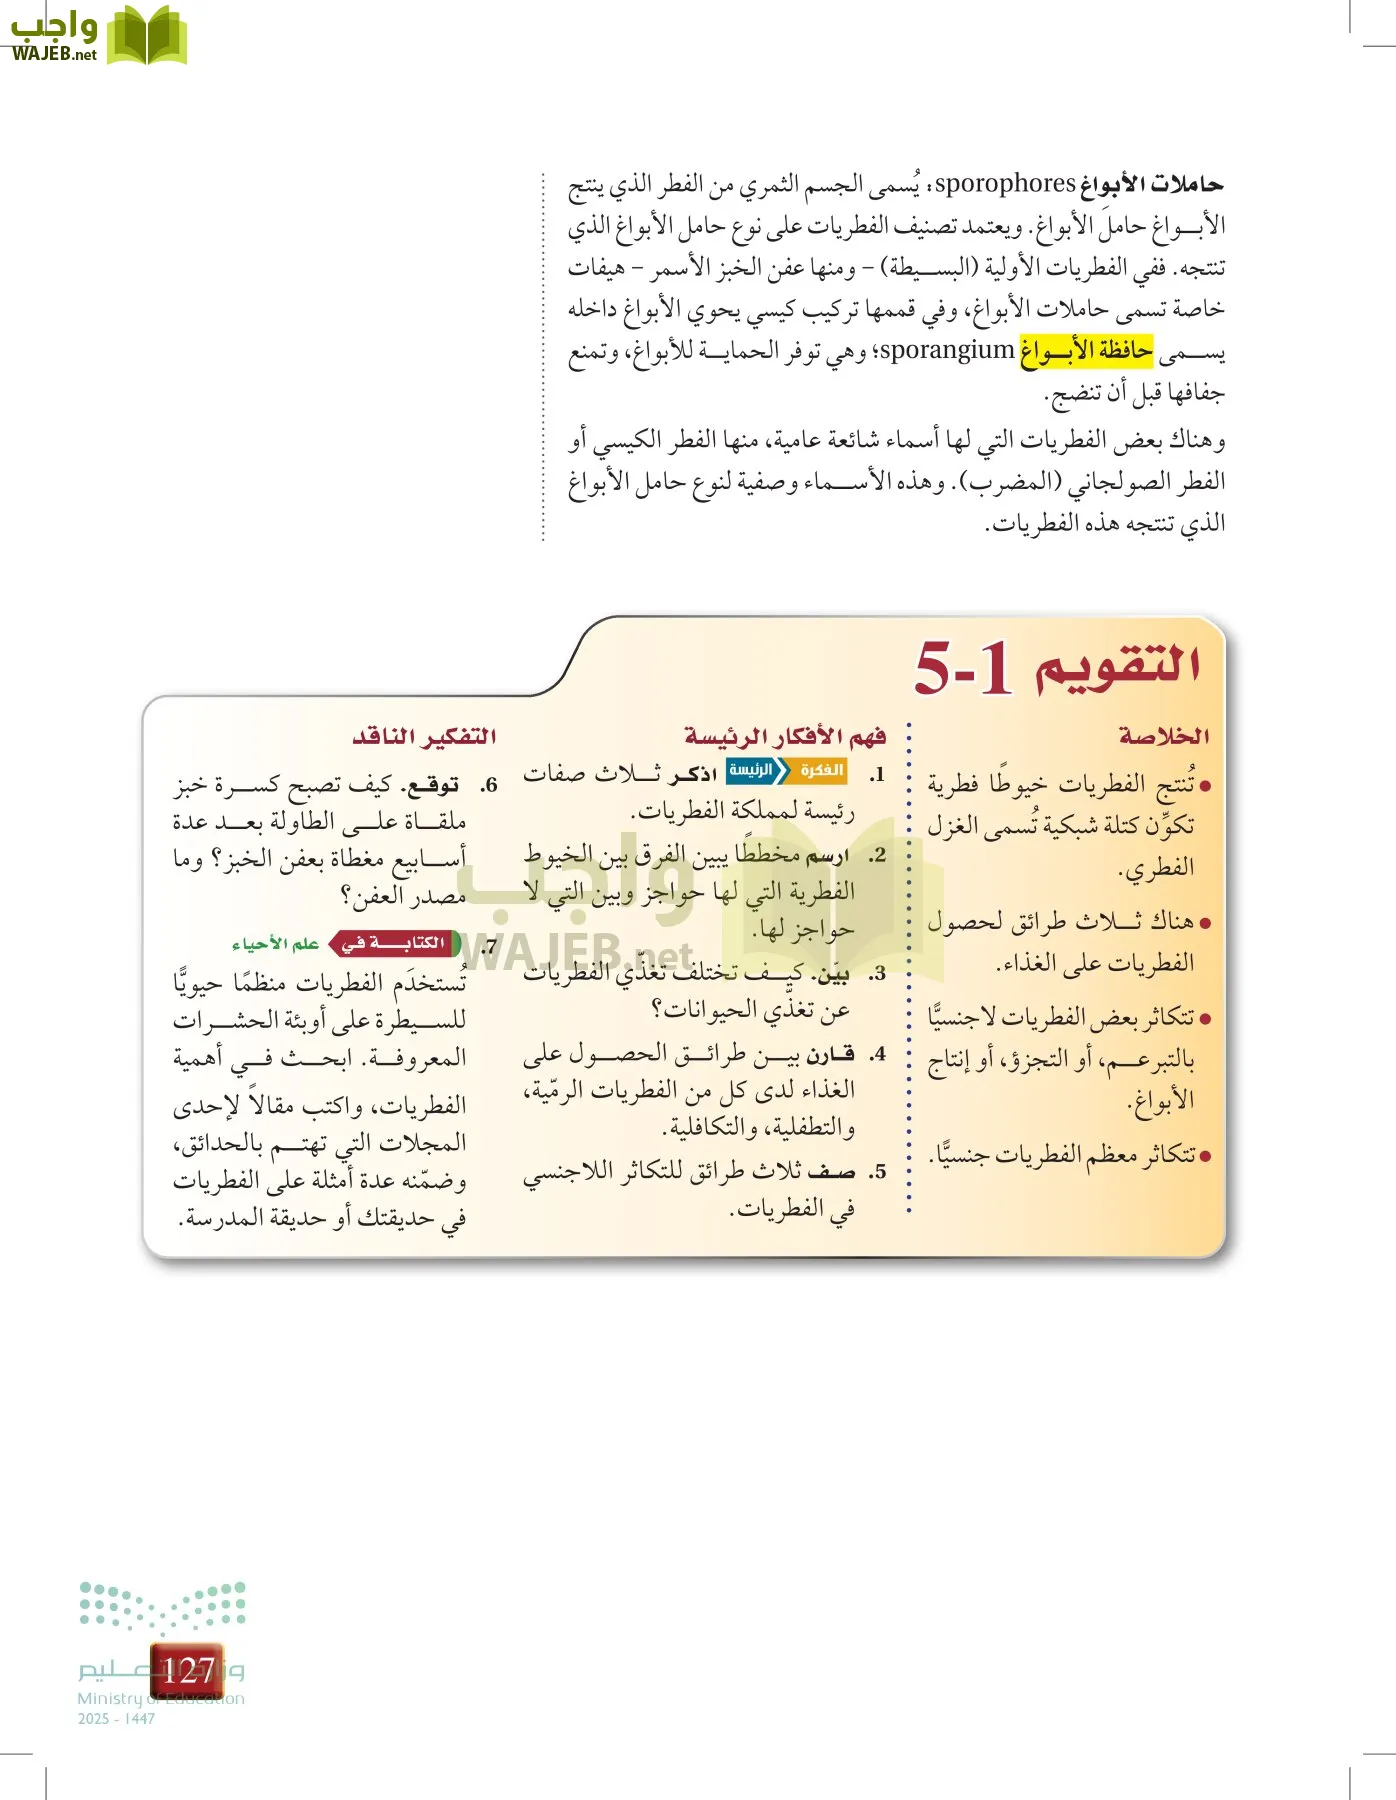 واجب
WAJEB.net
حاملات الأبواغ sporophores: يُسمى الجسم الثمري من الفطر الذي ينتج
الأبواغ حاملَ الأبواغ. ويعتمد تصنيف الفطريات على نوع حامل الأبواغ الذي
تنتجه. ففي الفطريات الأولية (البسيطة) – ومنها عفن الخبز الأسمر – هيفات
خاصة تسمى حاملات الأبواغ، وفي قممها تركيب كيسي يحوي الأبواغ داخله
يسمى حافظة الأبواغ sporangium؛ وهي توفر الحماية للأبواغ، وتمنع
جفافها قبل أن تنضج.
وهناك بعض الفطريات التي لها أسماء شائعة عامية، منها الفطر الكيسي أو
الفطر الصولجاني (المضرب). وهذه الأسماء وصفية لنوع حامل الأبواغ
الذي تنتجه هذه الفطريات.
التقويم 1-5
الخلاصة
• تُنتج الفطريات خيوطًا فطرية
تكوّن كتلة شبكية تُسمى الغزل
الفطري.
• هناك ثلاث طرائق لحصول
الفطريات على الغذاء.
• تتكاثر بعض الفطريات لاجنسيًّا
بالتبرعم، أو التجزؤ، أو إنتاج
الأبواغ.
• تتكاثر معظم الفطريات جنسيًّا.
فهم الأفكار الرئيسة
1. الفكرة الرئيسة اذكر ثلاث صفات
رئيسة لمملكة الفطريات.
2. ارسم مخططًا يبين الفرق بين الخيوط
الفطرية التي لها حواجز وبين التي لا
حواجز لها.
3. بيّن. كيف تختلف تغذّي الفطريات
عن تغذّي الحيوانات؟
4. قارن بين طرائق الحصول على
الغذاء لدى كل من الفطريات الرمّية،
والتطفلية، والتكافلية.
5. صف ثلاث طرائق للتكاثر اللاجنسي
في الفطريات.
التفكير الناقد
6. توقع. كيف تصبح كسرة خبز
ملقاة على الطاولة بعد عدة
أسابيع مغطاة بعفن الخبز؟ وما
مصدر العفن؟
7. الكتابة في علم الأحياء
تُستخدَم الفطريات منظمًا حيويًّا
للسيطرة على أوبئة الحشرات
المعروفة. ابحث في أهمية
الفطريات، واكتب مقالاً لإحدى
المجلات التي تهتم بالحدائق،
وضمّنه عدة أمثلة على الفطريات
في حديقتك أو حديقة المدرسة.
واجب
WAJEB.net
وزارة التعليم
127
Ministry of Education
2025 - 1447